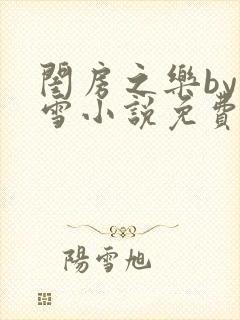 閨房之樂by
雪小說免費
陽雪旭